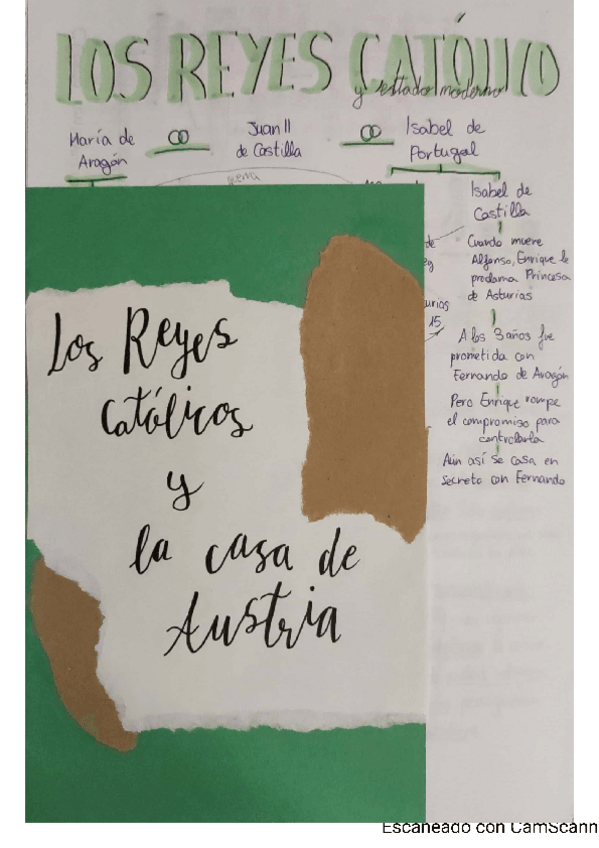 LOS REYES CATÓLICO
y estado moderno
María de
Aragón
Juan II
de Castilla
Isabel de
Portugal
Isabel de
Castilla
Cuando muere
Alfonso, Enrique le
proclama Princesa
de Asturias
A los 3 años fue
prometida con
Fernando de Aragón
Pero Enrique rompe
el compromiso para
controlarla
Aún así se casa en
secreto con Fernando
urias
15
Los Reyes
Católicos
y
la casa de
Austria
Escaneado con CamScann